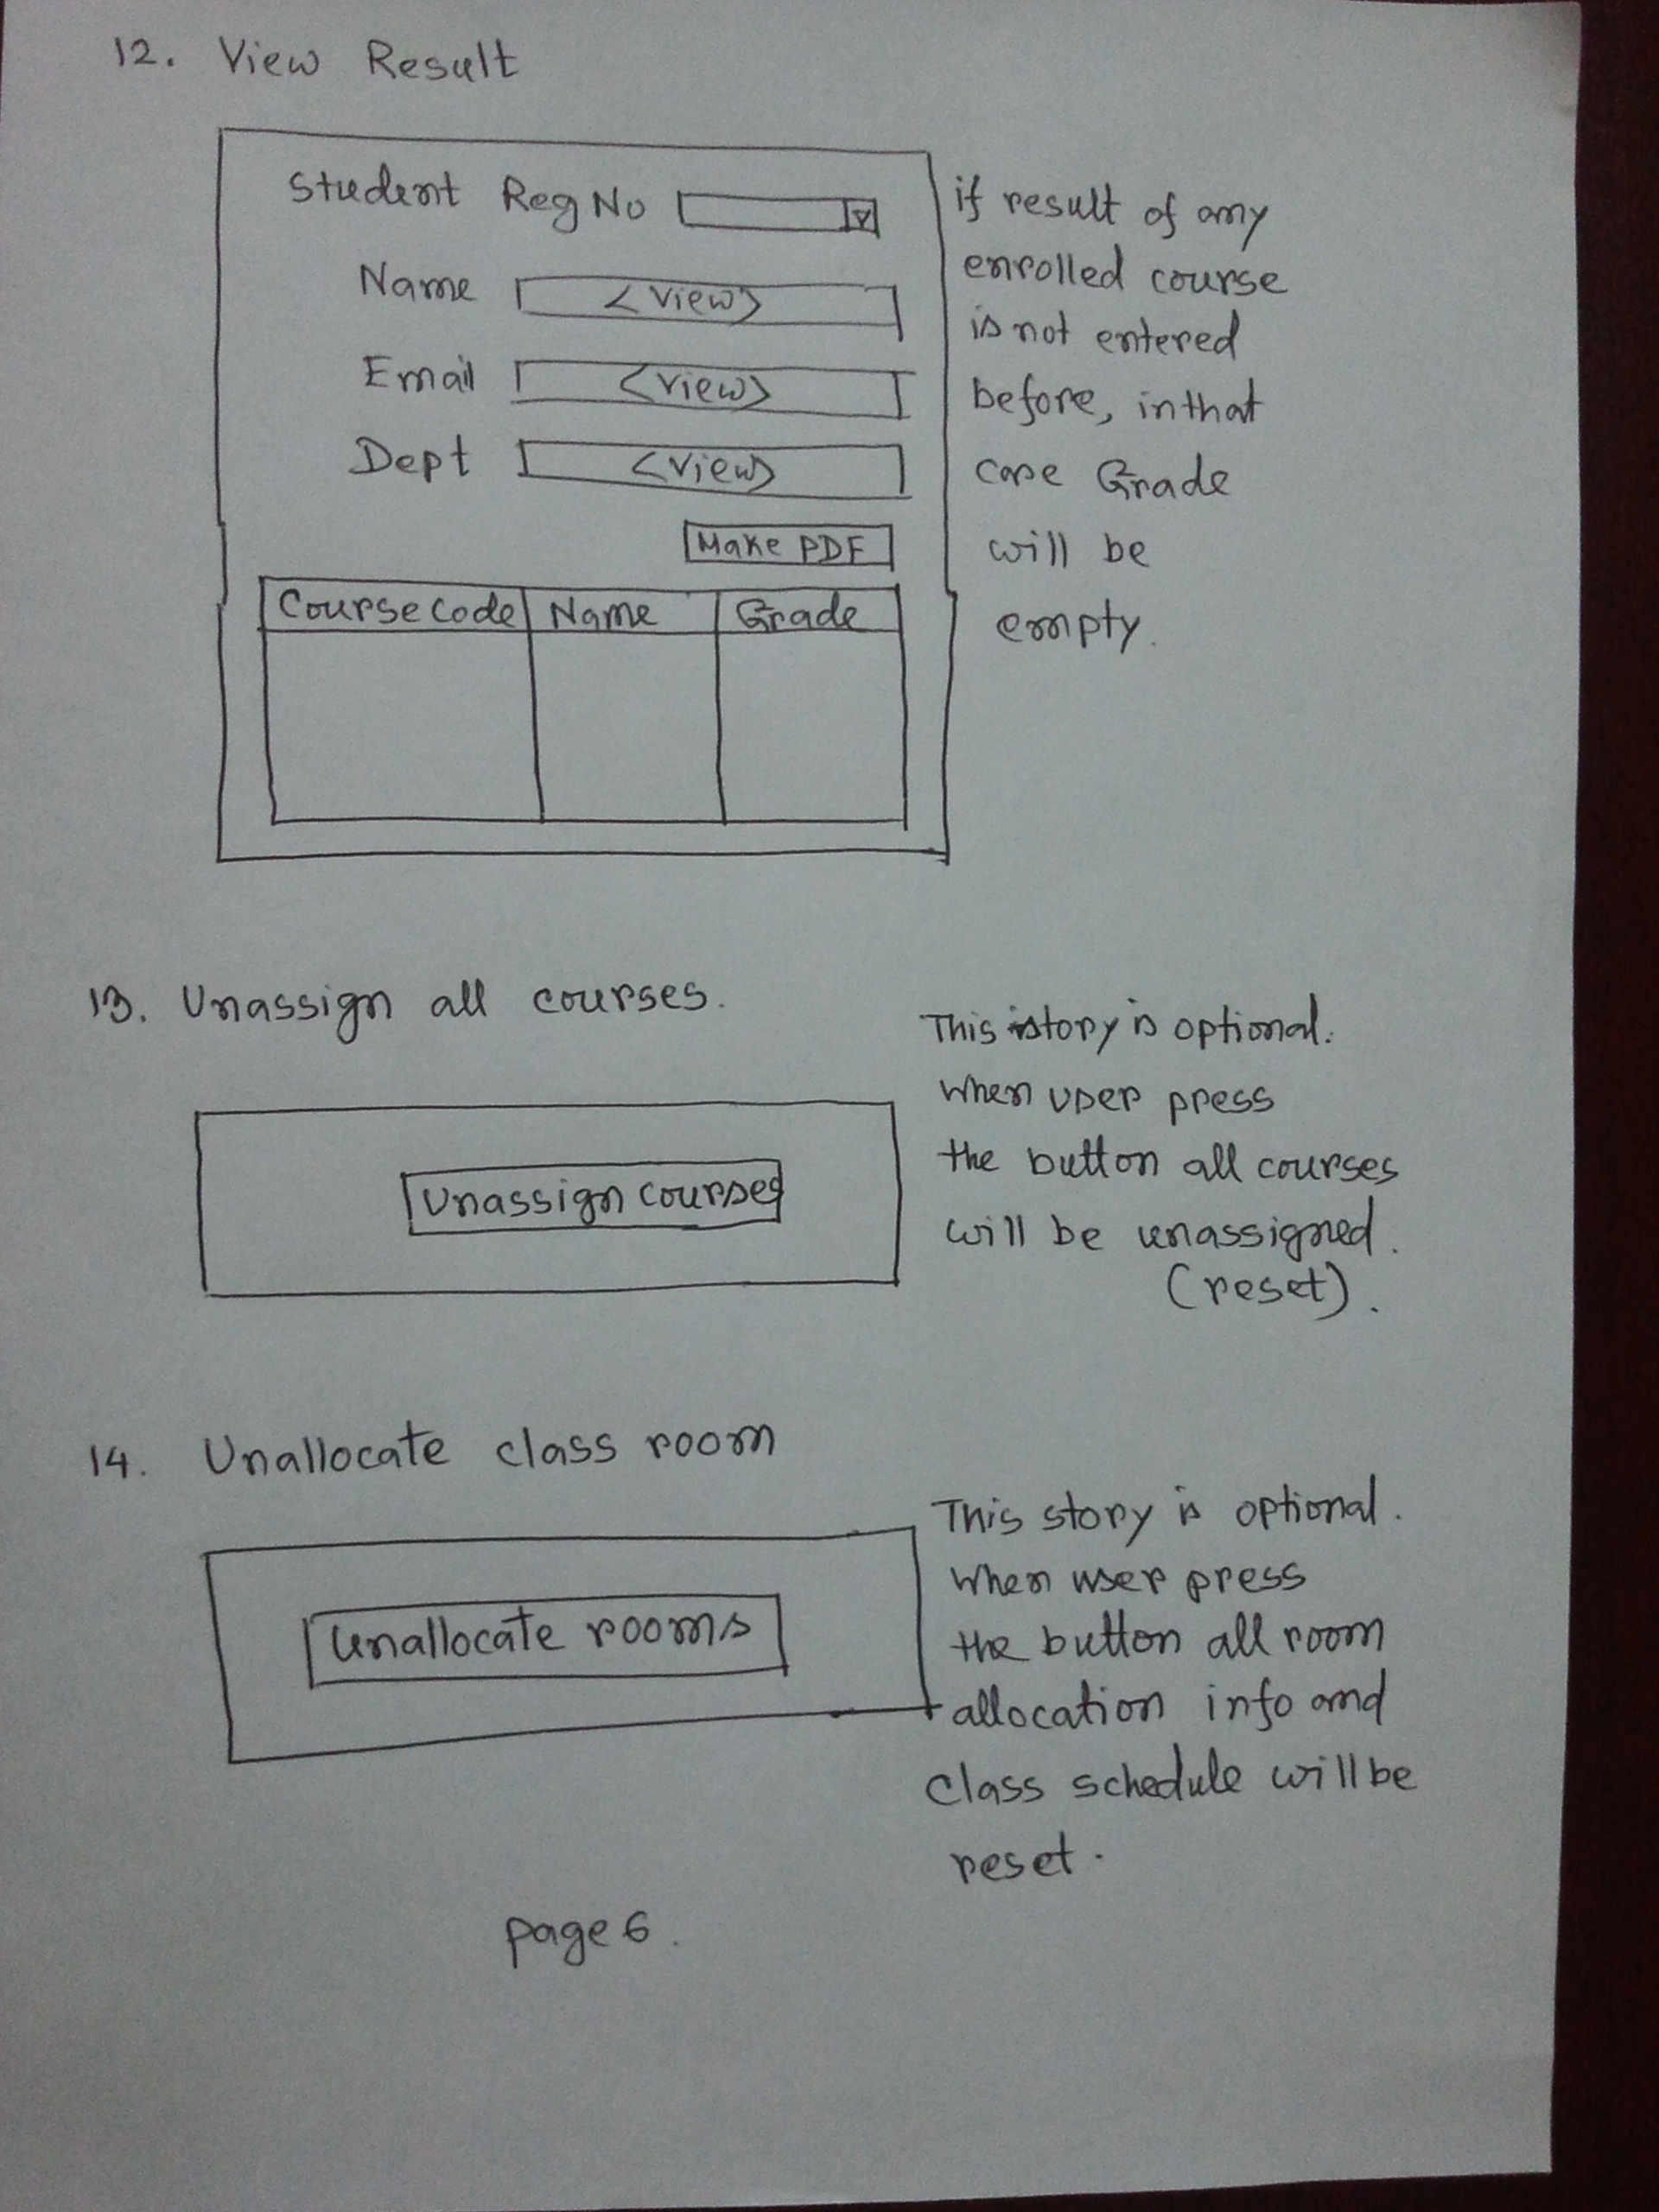 12. View Result
Student Reg No
Name <View>
Email <View>
Dept <View>
Make PDF
Course Code Name Grade
if result of any
enrolled course
is not entered
before, in that
case Grade
will be
empty.
13. Unassign all courses.
Unassign courses
This story is optional.
When user press
the button all courses
will be unassigned.
(reset).
14. Unallocate class room
Unallocate rooms
This story is optional.
When user press
the button all room
allocation info and
class schedule will be
reset.
page 6.